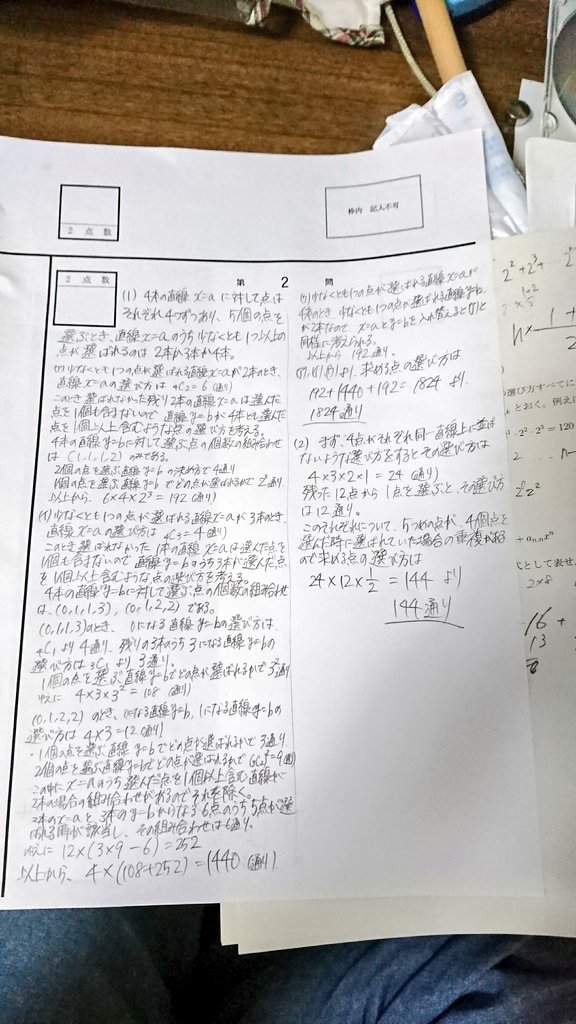 2 点 数
枠内 記入不可
2 点 数
第 2 問
(1) 4本の直線 x=a に対して点は
それぞれ4つずつあり、5個の点を
選ぶとき、直線x=aのうち少なくとも1つ以上の
点が選ばれるのは2本か3本か4本。
(ア)少なくとも1つの点が選ばれる直線x=aが2本のとき、
直線x=aの選び方は 4C2=6 (通り)
このとき選ばれなかった残り2本の直線x=aは選んだ
点を1個も含まないので直線y=bが4本とも選んだ
点を1個以上含むような点の選び方を考える。
4本の直線y=bに対して選ぶ点の個数の組み合わせ
は (1,1,1,2) のみである。
2個の点を選ぶ直線y=bの決め方で4通り
1個の点を選ぶ直線y=bでどの点が選ばれるかで2³通り
以上から、6×4×2³=192 (通り)
(イ) 少なくとも1つの点が選ばれる直線x=aが3本のとき、
直線x=aの選び方は 4C3=4 (通り)
このとき選ばれなかった1本の直線x=aは選んだ点を
1個も含まないので、直線y=bのうち3本が選んだ点
を1個以上含むような点の選び方を考える。
4本の直線y=bに対して選ぶ点の個数の組み合わせ
は、(0,1,1,3),(0,1,2,2)である。
(0,1,1,3)のとき、0になる直線y=bの選び方は、
4C1より4通り。残りの3本のうち3になる直線y=bの
選び方は3C1より3通り。
1個の点を選ぶ直線y=bでどの点が選ばれるかで3²通り
ゆえに 4×3×3²=108 (通り)
(0,1,2,2)のとき、0になる直線y=b,1になる直線y=bの
選び方は 4×3=12(通り)
・1個の点を選ぶ直線y=bでどの点が選ばれるかで3通り
2個の点を選ぶ直線y=bでどの点が選ばれるかで(3C2)²=9(通り)
この中にx=aのうち選んだ点を1個以上含む直線が
2本の場合の組み合わせがあるのでそれを除く。
2本のx=aと3本のy=bからなる6点のうち5点が選
ばれる時が該当し、その組み合わせは6通り。
ゆえに 12×(3×9-6)=252
以上から、4×(108+252)=1440 (通り)
(ウ)少なくとも1つの点が選ばれる直線x=aが
4本のとき、少なくとも1つの点が選ばれる直線y=b
が2本なので x=aとy=bを入れ替えると(ア)と
同様に考えられる。
以上から 192通り。
(ア),(イ),(ウ)より、求める点の選び方は
192+1440+192=1824 より.
1824通り
(2) まず、4点がそれぞれ同一直線上に並ば
ないような選び方をするとその選び方は
4×3×2×1=24 (通り)
残った12点から1点を選ぶと、その選び方
は12通り。
このそれぞれについて、5つめの点が、4個点を
選んだ時に選ばれていた場合の重複がある
ので求める点の選び方は
24×12×1/2=144 より
144通り
2²+2³+
選び方すべてに
とおく。例えば
·2²·2³=120
2²2²
として表せ、
2×8
16 +
13